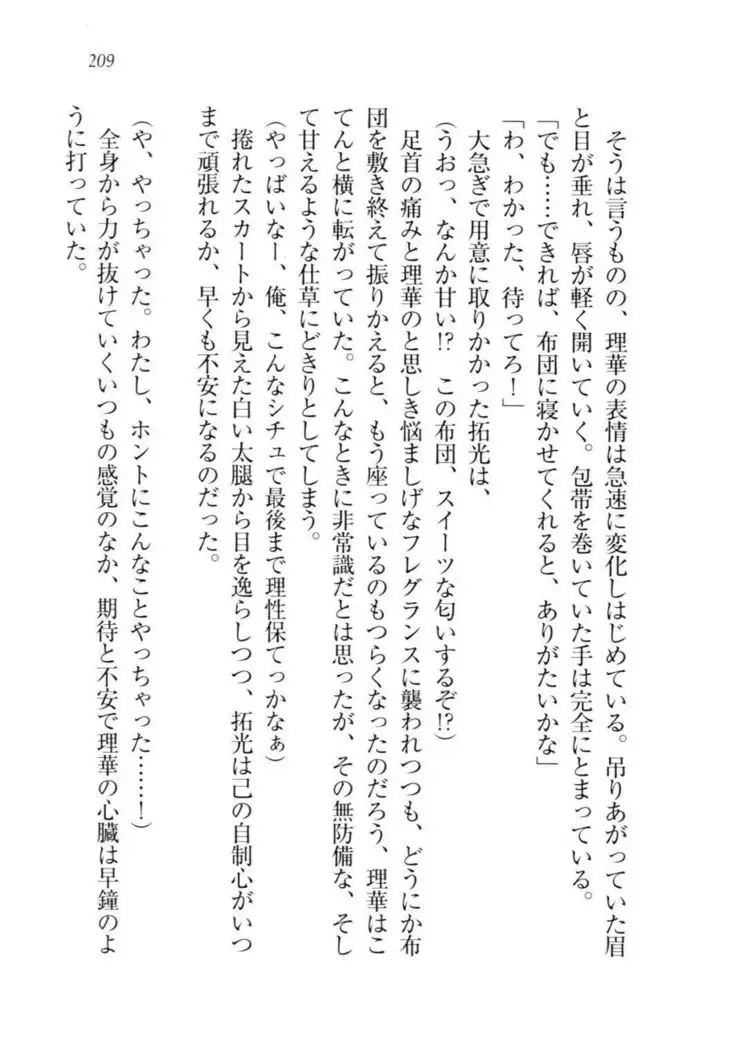 209
そうは言うものの、理華の表情は急速に変化しはじめている。吊りあがっていた眉
と目が垂れ、唇が軽く開いていく。包帯を巻いていた手は完全にとまっている。
「でも……できれば、布団に寝かせてくれると、ありがたいかな」
「わ、わかった、待ってろ！」
大急ぎで用意に取りかかった拓光は、
（うおっ、なんか甘い!?　この布団、スイーツな匂いするぞ!?）
足首の痛みと理華のと思しき悩ましげなフレグランスに襲われつつも、どうにか布
団を敷き終えて振りかえると、もう座っているのもつらくなったのだろう、理華はこ
てんと横に転がっていた。こんなときに非常識だとは思ったが、その無防備な、そし
て甘えるような仕草にどきりとしてしまう。
（やっばいなー、俺、こんなシチュで最後まで理性保てっかなぁ）
捲れたスカートから見えた白い太腿から目を逸らしつつ、拓光は己の自制心がいつ
まで頑張れるか、早くも不安になるのだった。
（や、やっちゃった。わたし、ホントにこんなことやっちゃった……！）
全身から力が抜けていくいつもの感覚のなか、期待と不安で理華の心臓は早鐘のよ
うに打っていた。